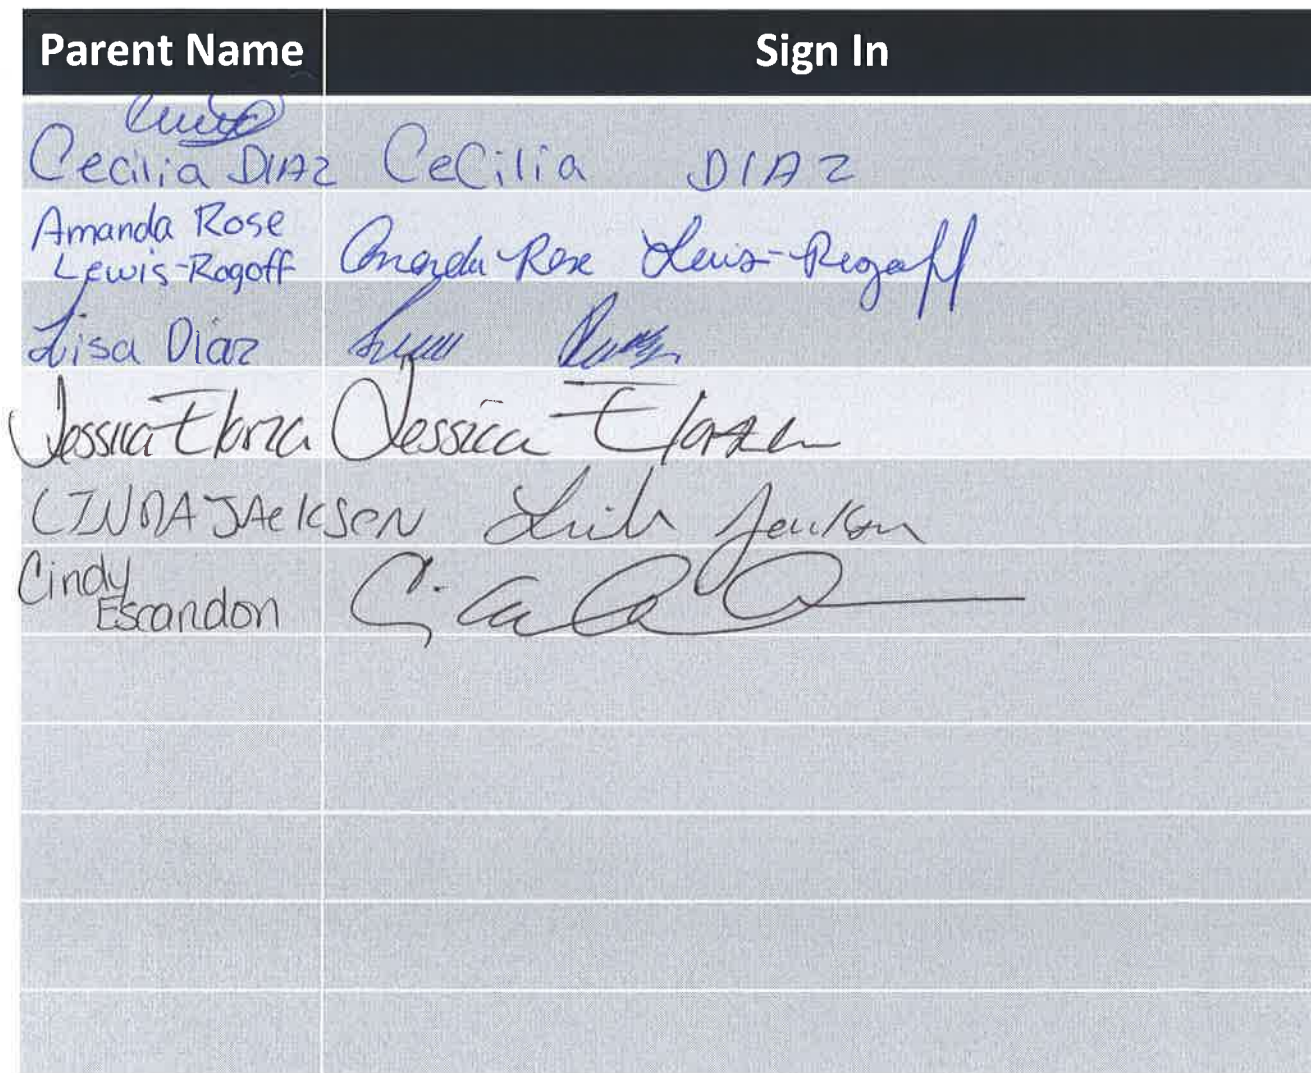 Parent Name Sign In
Cecilia DIAZ CeCilia DIAZ
Amanda Rose
Lewis-Rogoff Amanda-Rose Lewis-Rogoff
Lisa Diaz
Jessica Elorza Jessica Elorza
LINDA JAckSON Linda Jackson
Cindy
Escandon